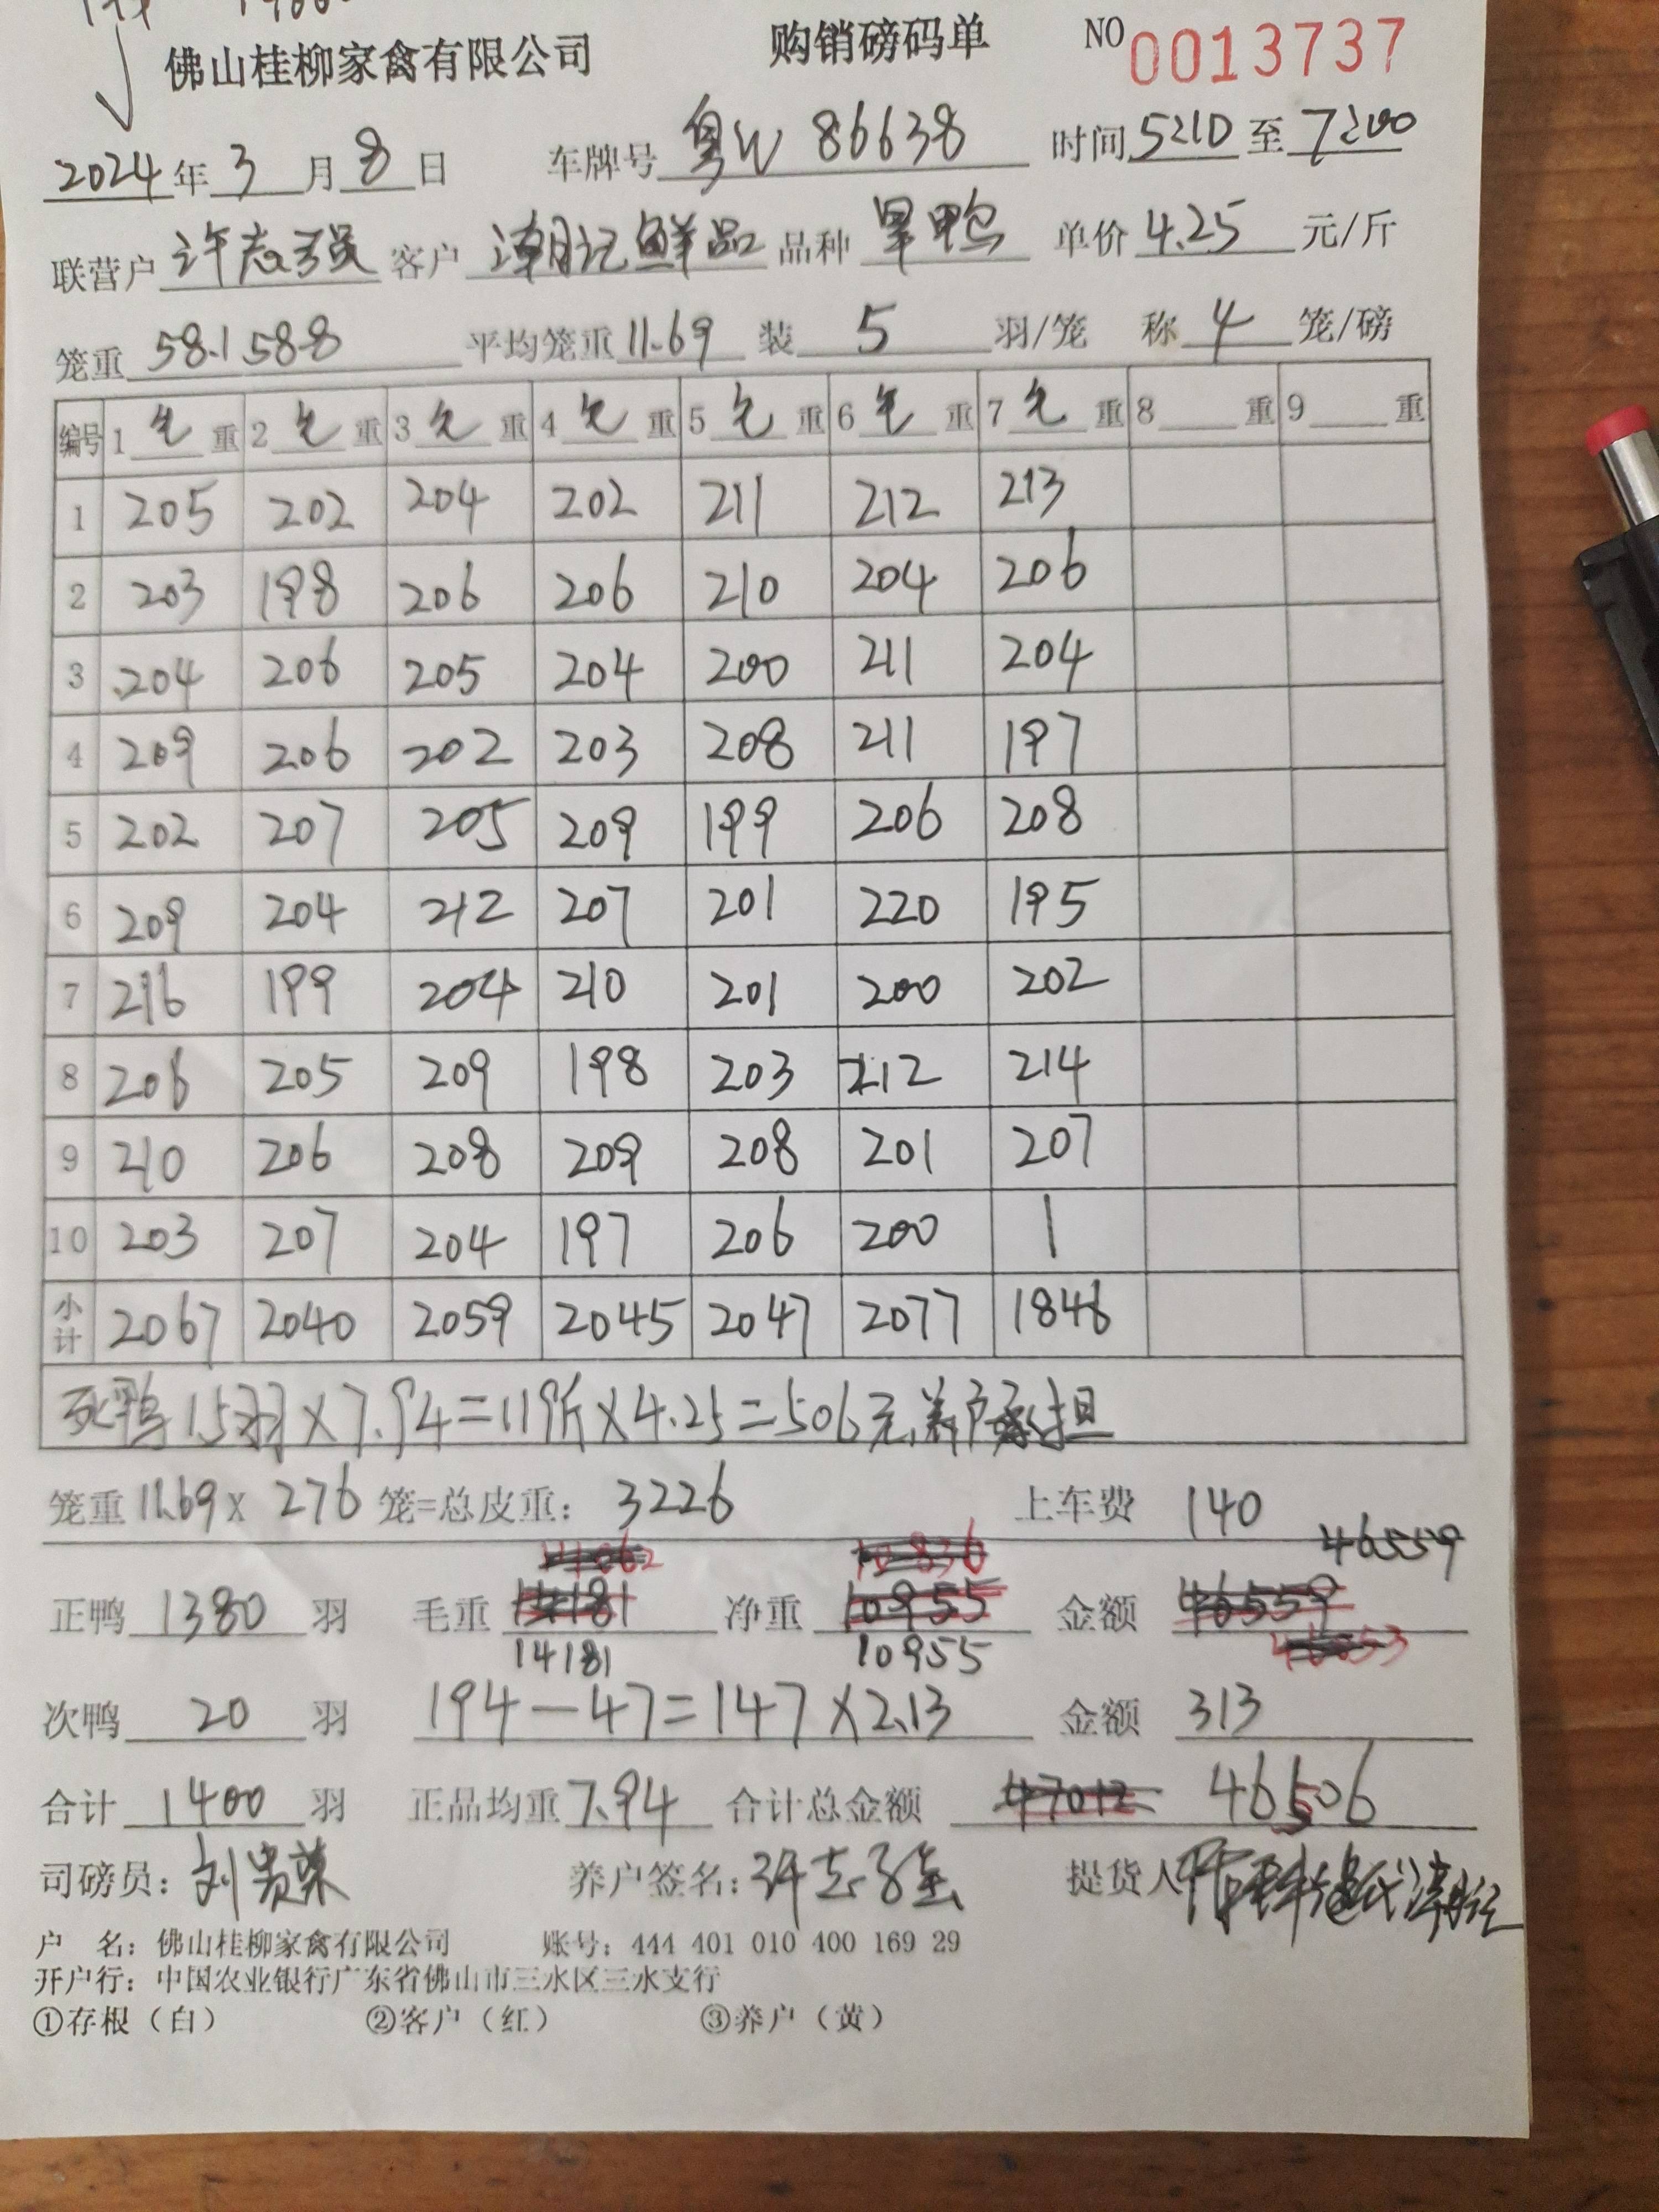 佛山桂柳家禽有限公司 购销磅码单 NO 0013737
2024年3月8日 车牌号 粤 86638 时间 5:10 至 7:00
联营户 许志强 客户 潮记鲜品 品种 旱鸭 单价 4.25 元/斤
笼重 58.1 58.8 平均笼重 11.69 装 5 羽/笼 称 4 笼/磅
编号 1 毛 重 2 毛 重 3 毛 重 4 毛 重 5 毛 重 6 毛 重 7 毛 重 8 重 9 重
1 205 202 204 202 211 212 213
2 203 198 206 206 210 204 206
3 204 206 205 204 200 211 204
4 209 206 202 203 208 211 197
5 202 207 205 209 199 206 208
6 209 204 212 207 201 220 195
7 216 199 204 210 201 200 202
8 206 205 209 198 203 212 214
9 210 206 208 209 208 201 207
10 203 207 204 197 206 200 1
小计 2067 2040 2059 2045 2047 2077 1846
死鸭15羽×7.94=119斤×4.25=506元,养户承担
笼重 11.69 × 276 笼=总皮重: 3226 上车费 140
46559
正鸭 1380 羽 毛重 14181 净重 10955 金额 46559
14181 10955
次鸭 20 羽 194-47=147×2.13 金额 313
合计 1400 羽 正品均重 7.94 合计总金额 47012 46506
司磅员: 刘贵荣 养户签名: 许志强 提货人
户 名: 佛山桂柳家禽有限公司 账号: 444 401 010 400 169 29
开户行: 中国农业银行广东省佛山市三水区三水支行
①存根(白) ②客户(红) ③养户(黄)